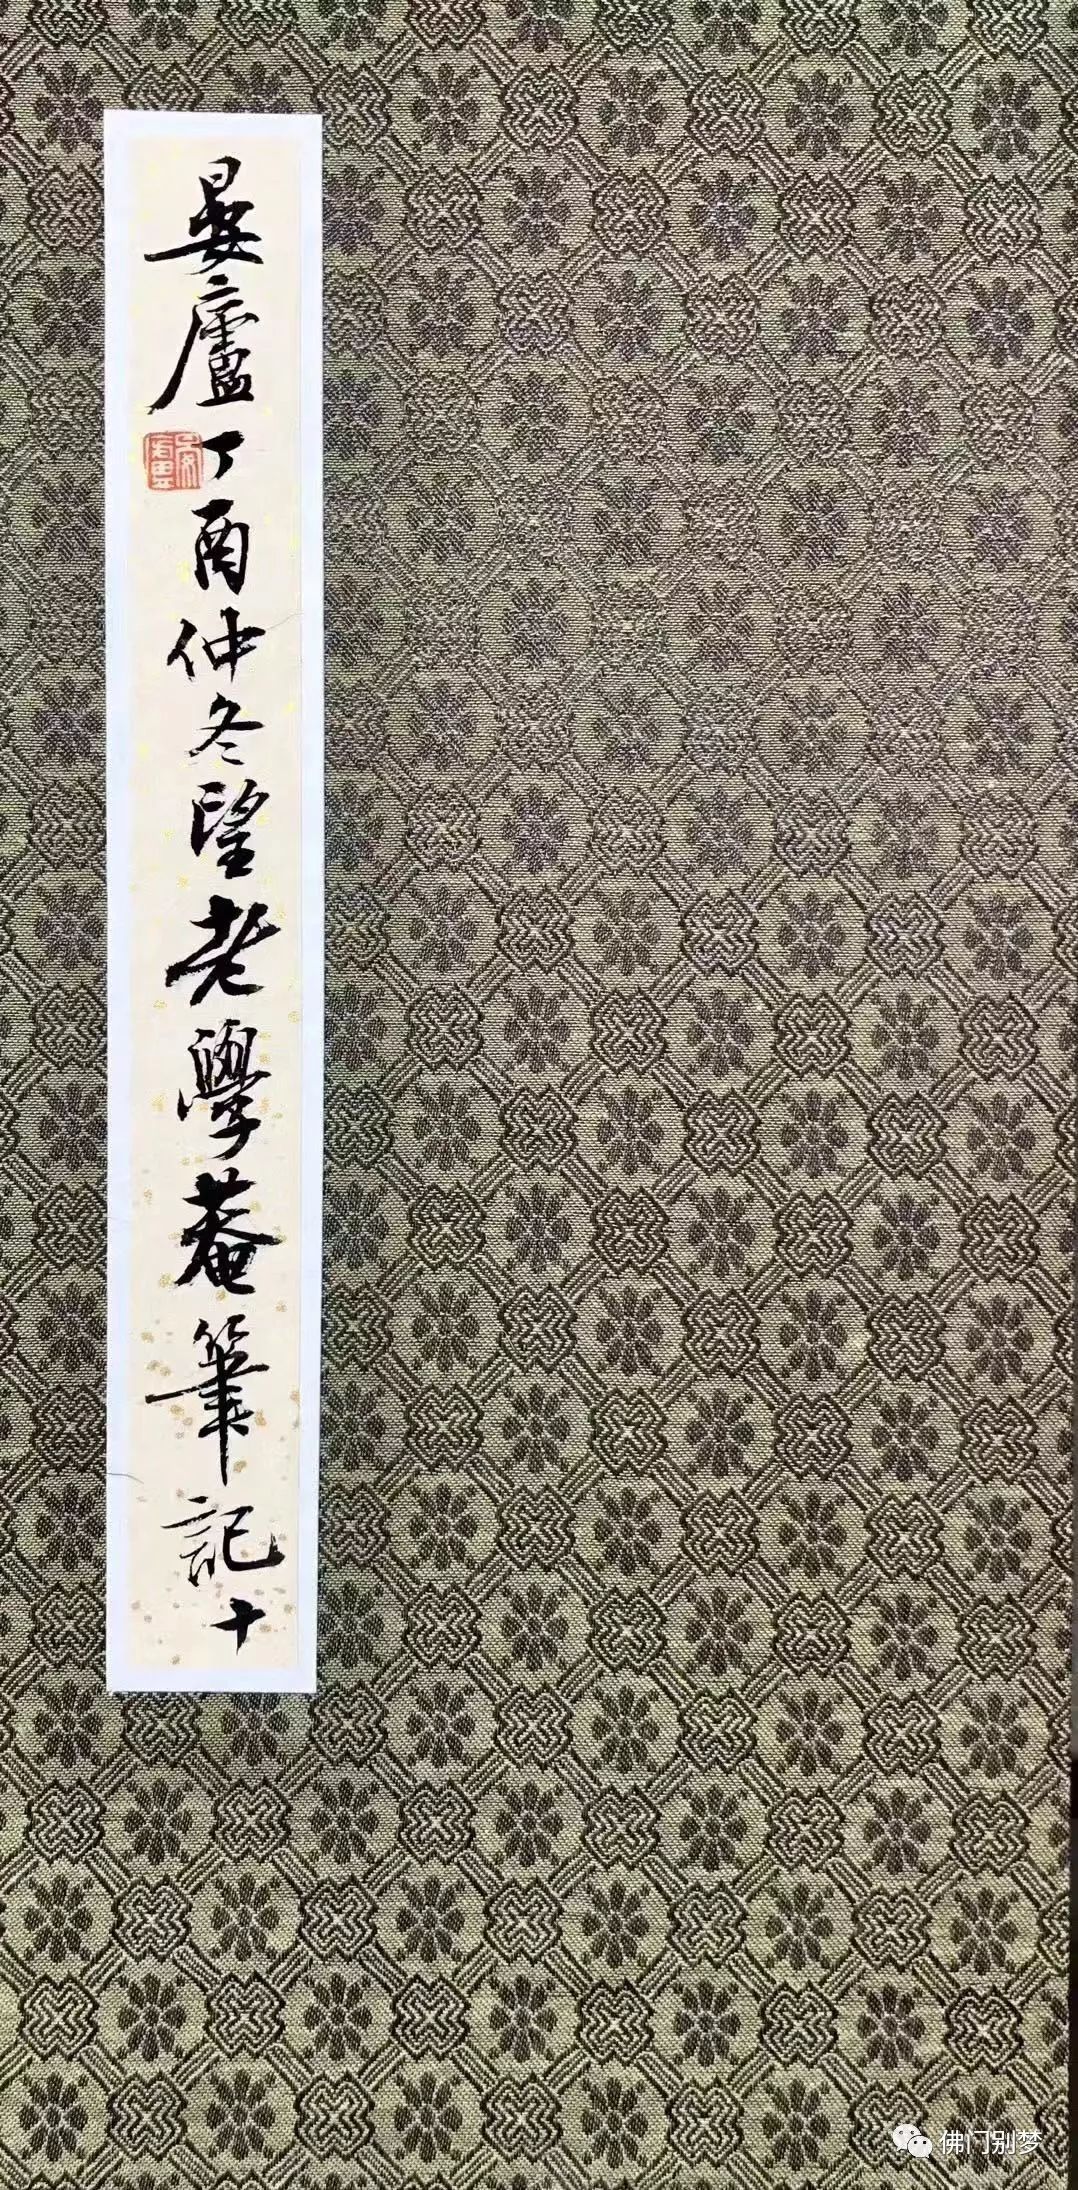 晏廬丁酉仲冬望老學菴筆記十
晏廬
佛门别梦